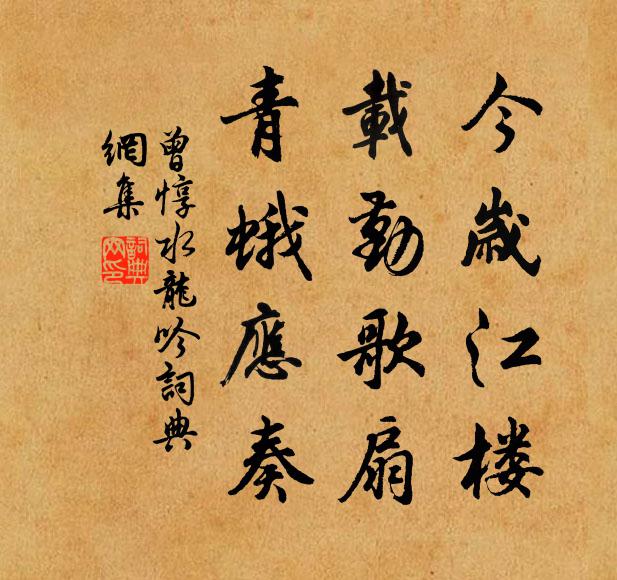 今歲江楼
載勤歌扇
青蛾應奏
曾惇水龍吟詞典
網集
詞典
网印